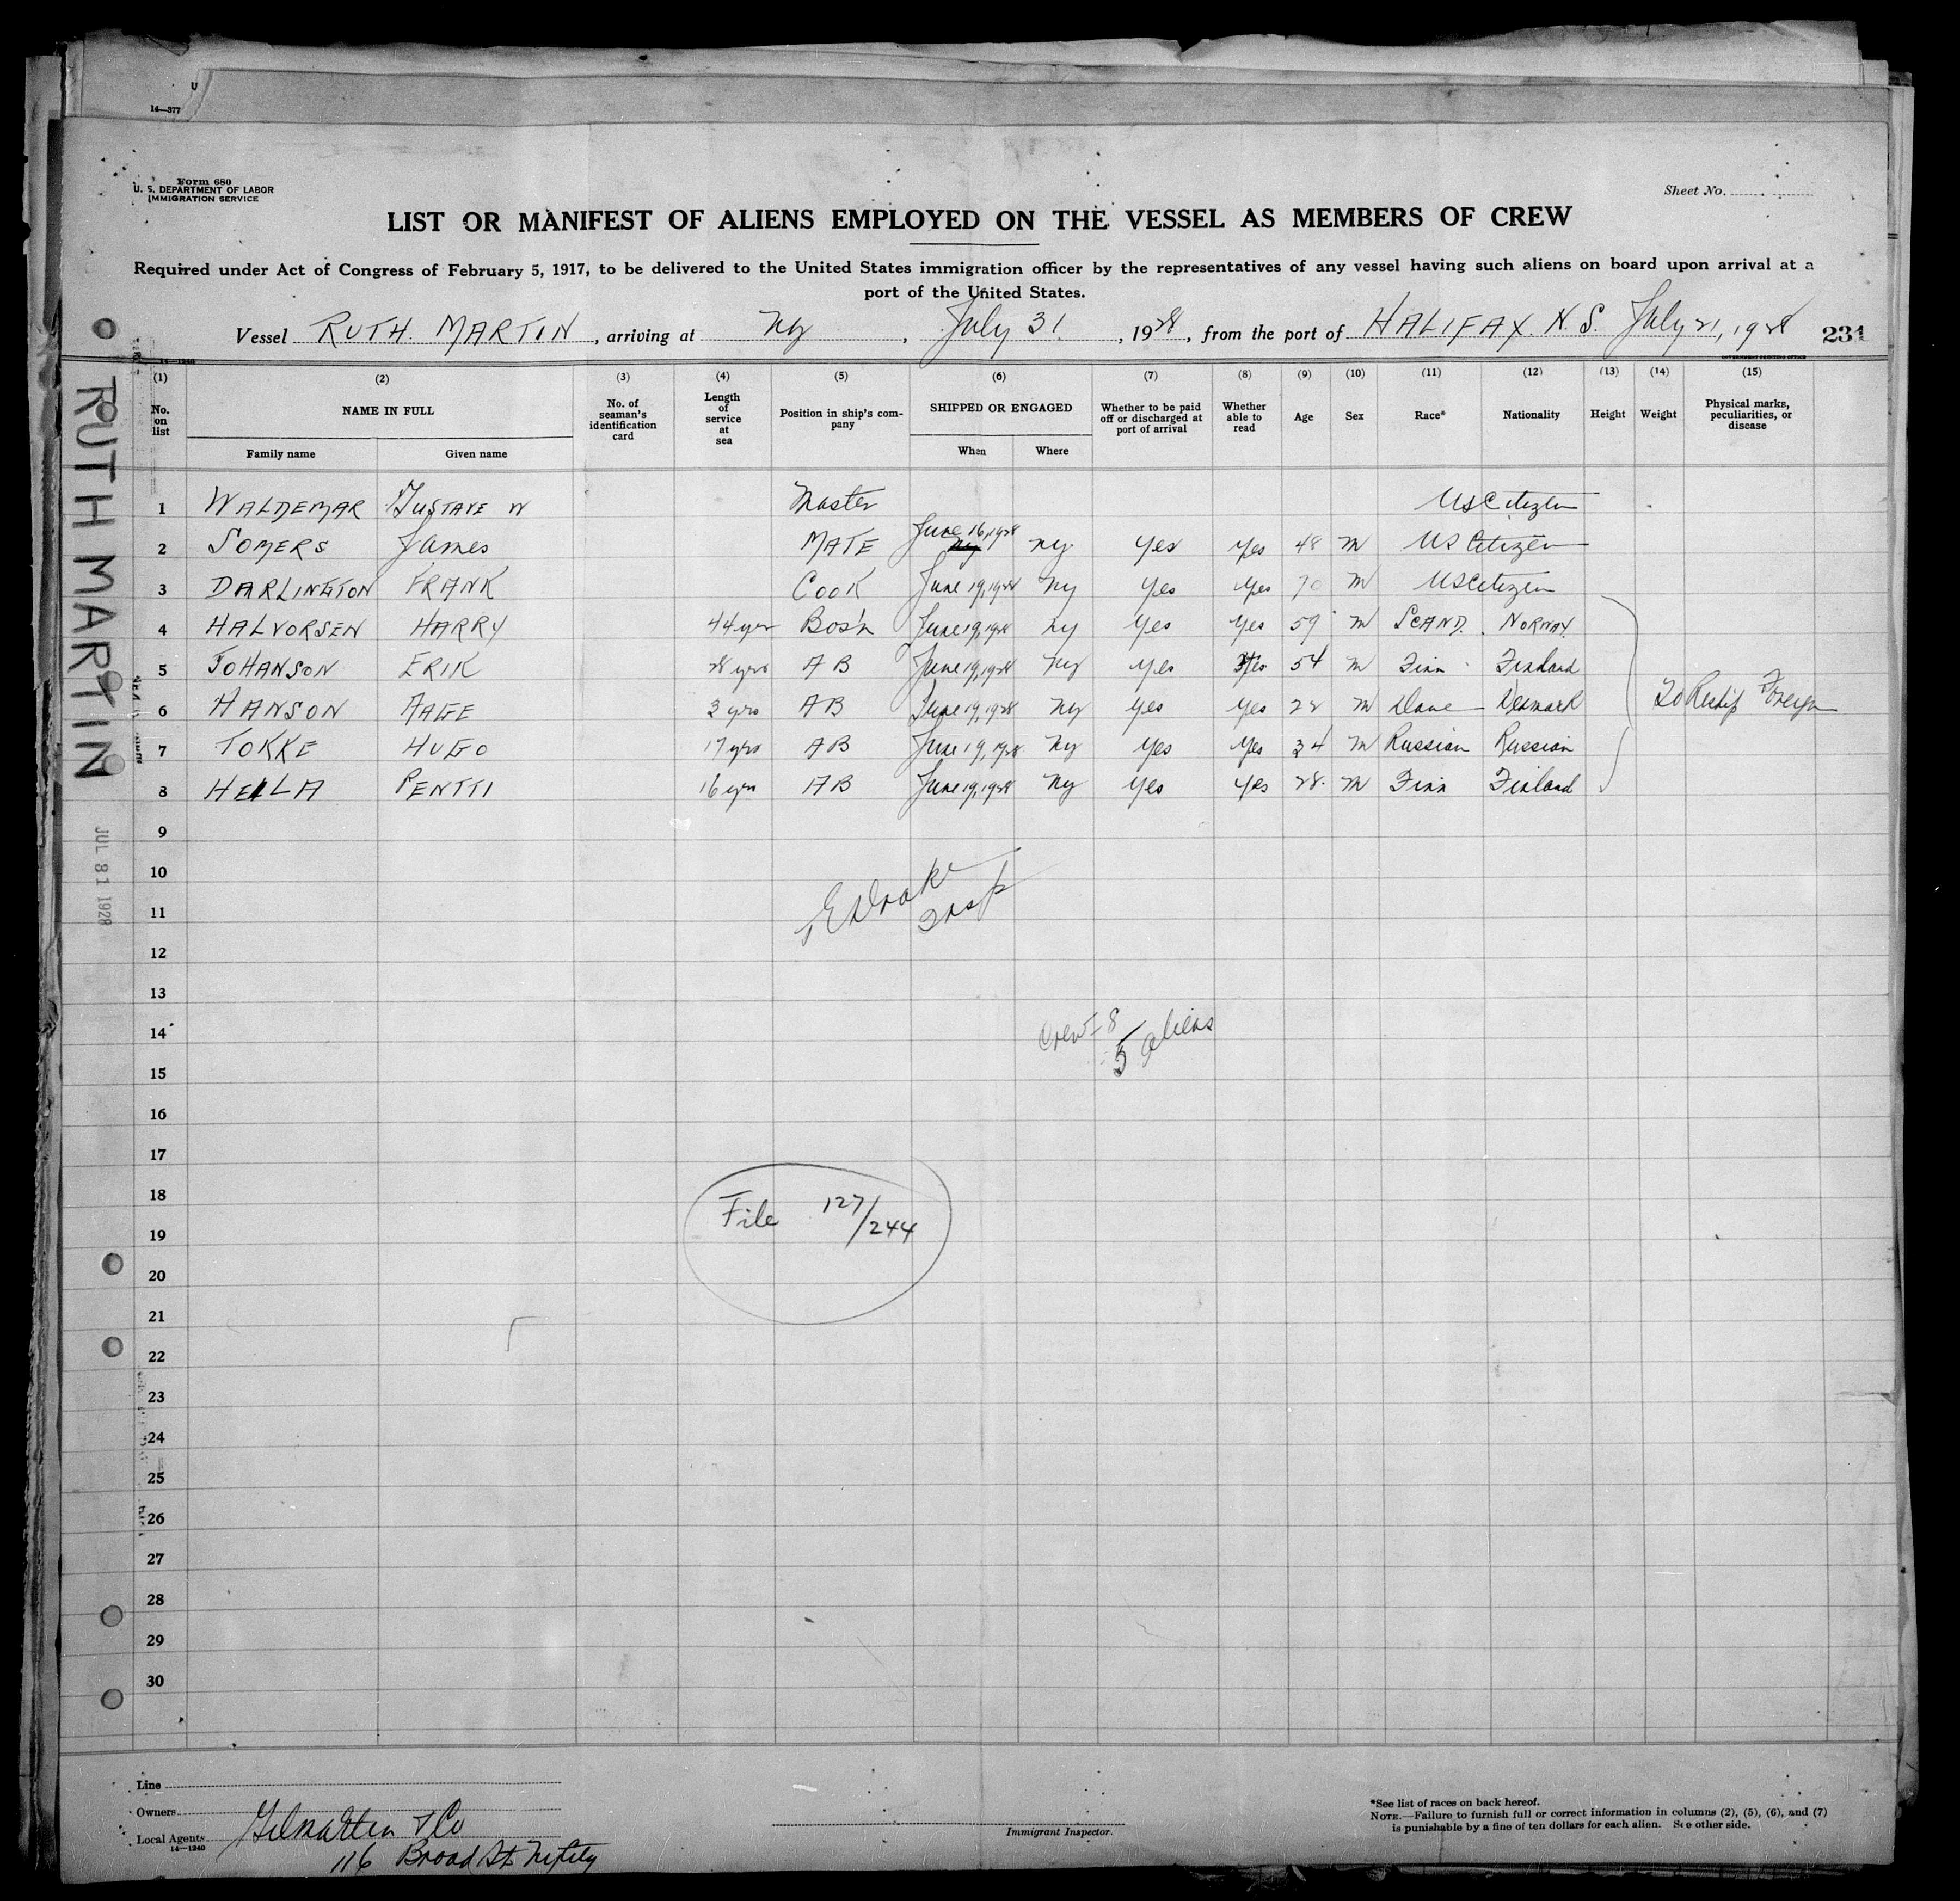 U
14—377
Form 680
U. S. DEPARTMENT OF LABOR
IMMIGRATION SERVICE
Sheet No.
LIST OR MANIFEST OF ALIENS EMPLOYED ON THE VESSEL AS MEMBERS OF CREW
Required under Act of Congress of February 5, 1917, to be delivered to the United States immigration officer by the representatives of any vessel having such aliens on board upon arrival at a
port of the United States.
Vessel RUTH MARTIN, arriving at Ny, July 31, 1928, from the port of HALIFAX N.S. July 21, 1928 231
14—1240 GOVERNMENT PRINTING OFFICE
RUTH MARTIN
JUL 31 1928
(1) (2) (3) (4) (5) (6) (7) (8) (9) (10) (11) (12) (13) (14) (15)
No. on list NAME IN FULL No. of seaman's identification card Length of service at sea Position in ship's company SHIPPED OR ENGAGED Whether to be paid off or discharged at port of arrival Whether able to read Age Sex Race* Nationality Height Weight Physical marks, peculiarities, or disease
Family name Given name When Where
1 WALDEMAR GUSTAVE W Master US Citizen
2 SOMERS James MATE June 16, 1928 ny yes yes 48 m US Citizen
3 DARLINGTON FRANK COOK June 19, 1928 ny yes yes 70 m US Citizen
4 HALVORSEN HARRY 44 yrs Bos'n June 19, 1928 ny yes yes 59 m SCAND. NORWAY
5 JOHANSON ERIK 28 yrs AB June 19, 1928 ny yes yes 54 m Finn Finland
6 HANSON AAGE 3 yrs AB June 19, 1928 ny yes yes 22 m Dane Denmark
7 TOKKE HUGO 17 yrs AB June 19, 1928 ny yes yes 34 m Russian Russian
8 HELLA PENTTI 16 yrs AB June 19, 1928 ny yes yes 28 m Finn Finland
To Reship Foreign
9
10
11
E Drake
Insp
12
13
14
Crew - 8
5 aliens
15
16
17
18
File 127/244
19
20
21
22
23
24
25
26
27
28
29
30
Line
Owners
Local Agents
14—1240
& Co
116 Broad St NyCity
Immigrant Inspector.
*See list of races on back hereof.
NOTE.—Failure to furnish full or correct information in columns (2), (5), (6), and (7)
is punishable by a fine of ten dollars for each alien. See other side.